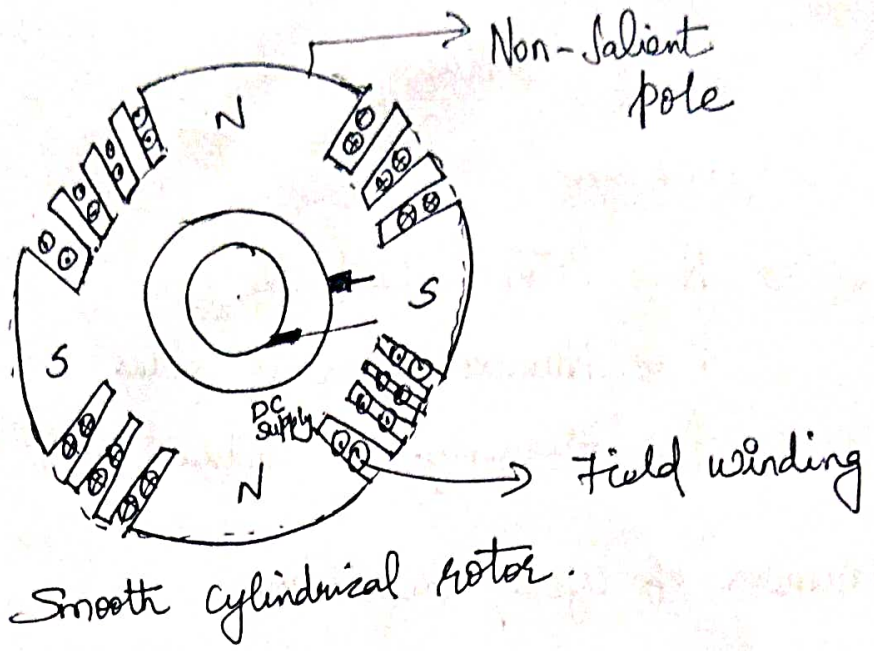 Non-Salient
pole
N
S
S
DC
Supply
N
Field winding
Smooth cylindrical rotor.